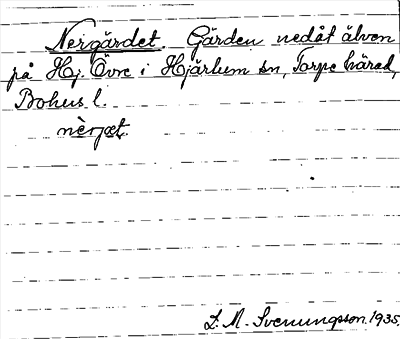 Nergärdet. Gärden nedåt älven
på Hj. Övre i Hjärtum sn, Torpe härad,
Bohus l.
nèrjæt.
L. M. Svenungsson. 1935.